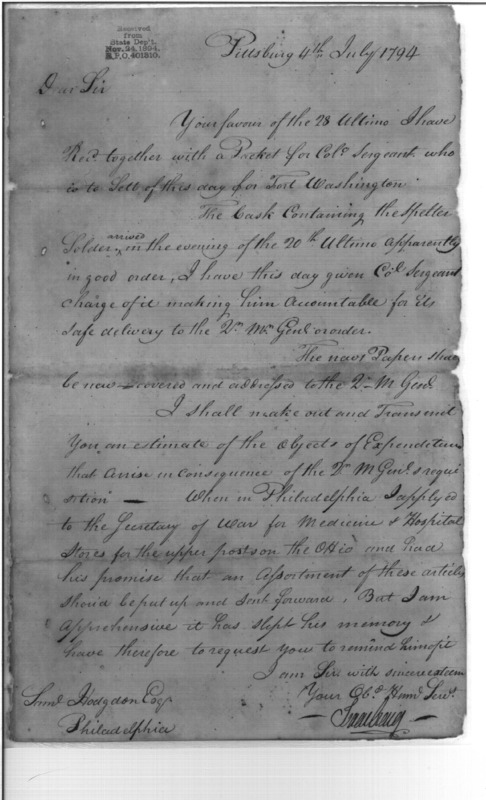 Received
from
State Dep't.
Nov. 24, 1894.
R.P.O. 401310.
Pittsburg 4th July 1794
Dear Sir
Your favour of the 28 Ultimo I have
Recd together with a Packet for Colo Sergeant who
is to Sett of this day for Fort Washington
The Cask Containing the Spelter
Solder arrived in the evening of the 20th Ultimo apparently
in good order, I have this day given Col Sergeant
charge of it making him Accountable for its
Safe delivery to the Qr Mr Genl or order.
The news Papers shall
be new covered and addressed to the Qr M Genl
I shall make out and Transmit
You an estimate of the objects of Expenditure
that arise in consequence of the Qr M Genl.s requi
sition — When in Philadelphia I applyed
to the Secretary of War for Medicine & Hospital
Stores for the upper posts on the Ohio and had
his promise that an Assortment of these articles
should be put up and sent forward, But I am
apprehensive it has slept his memory &
have therefore to request you to remind him of it
I am Sir with sincere esteem
Your Obd Hume Servt
Saml Hodgdon Esqr
Isaac Craig
Philadelphia